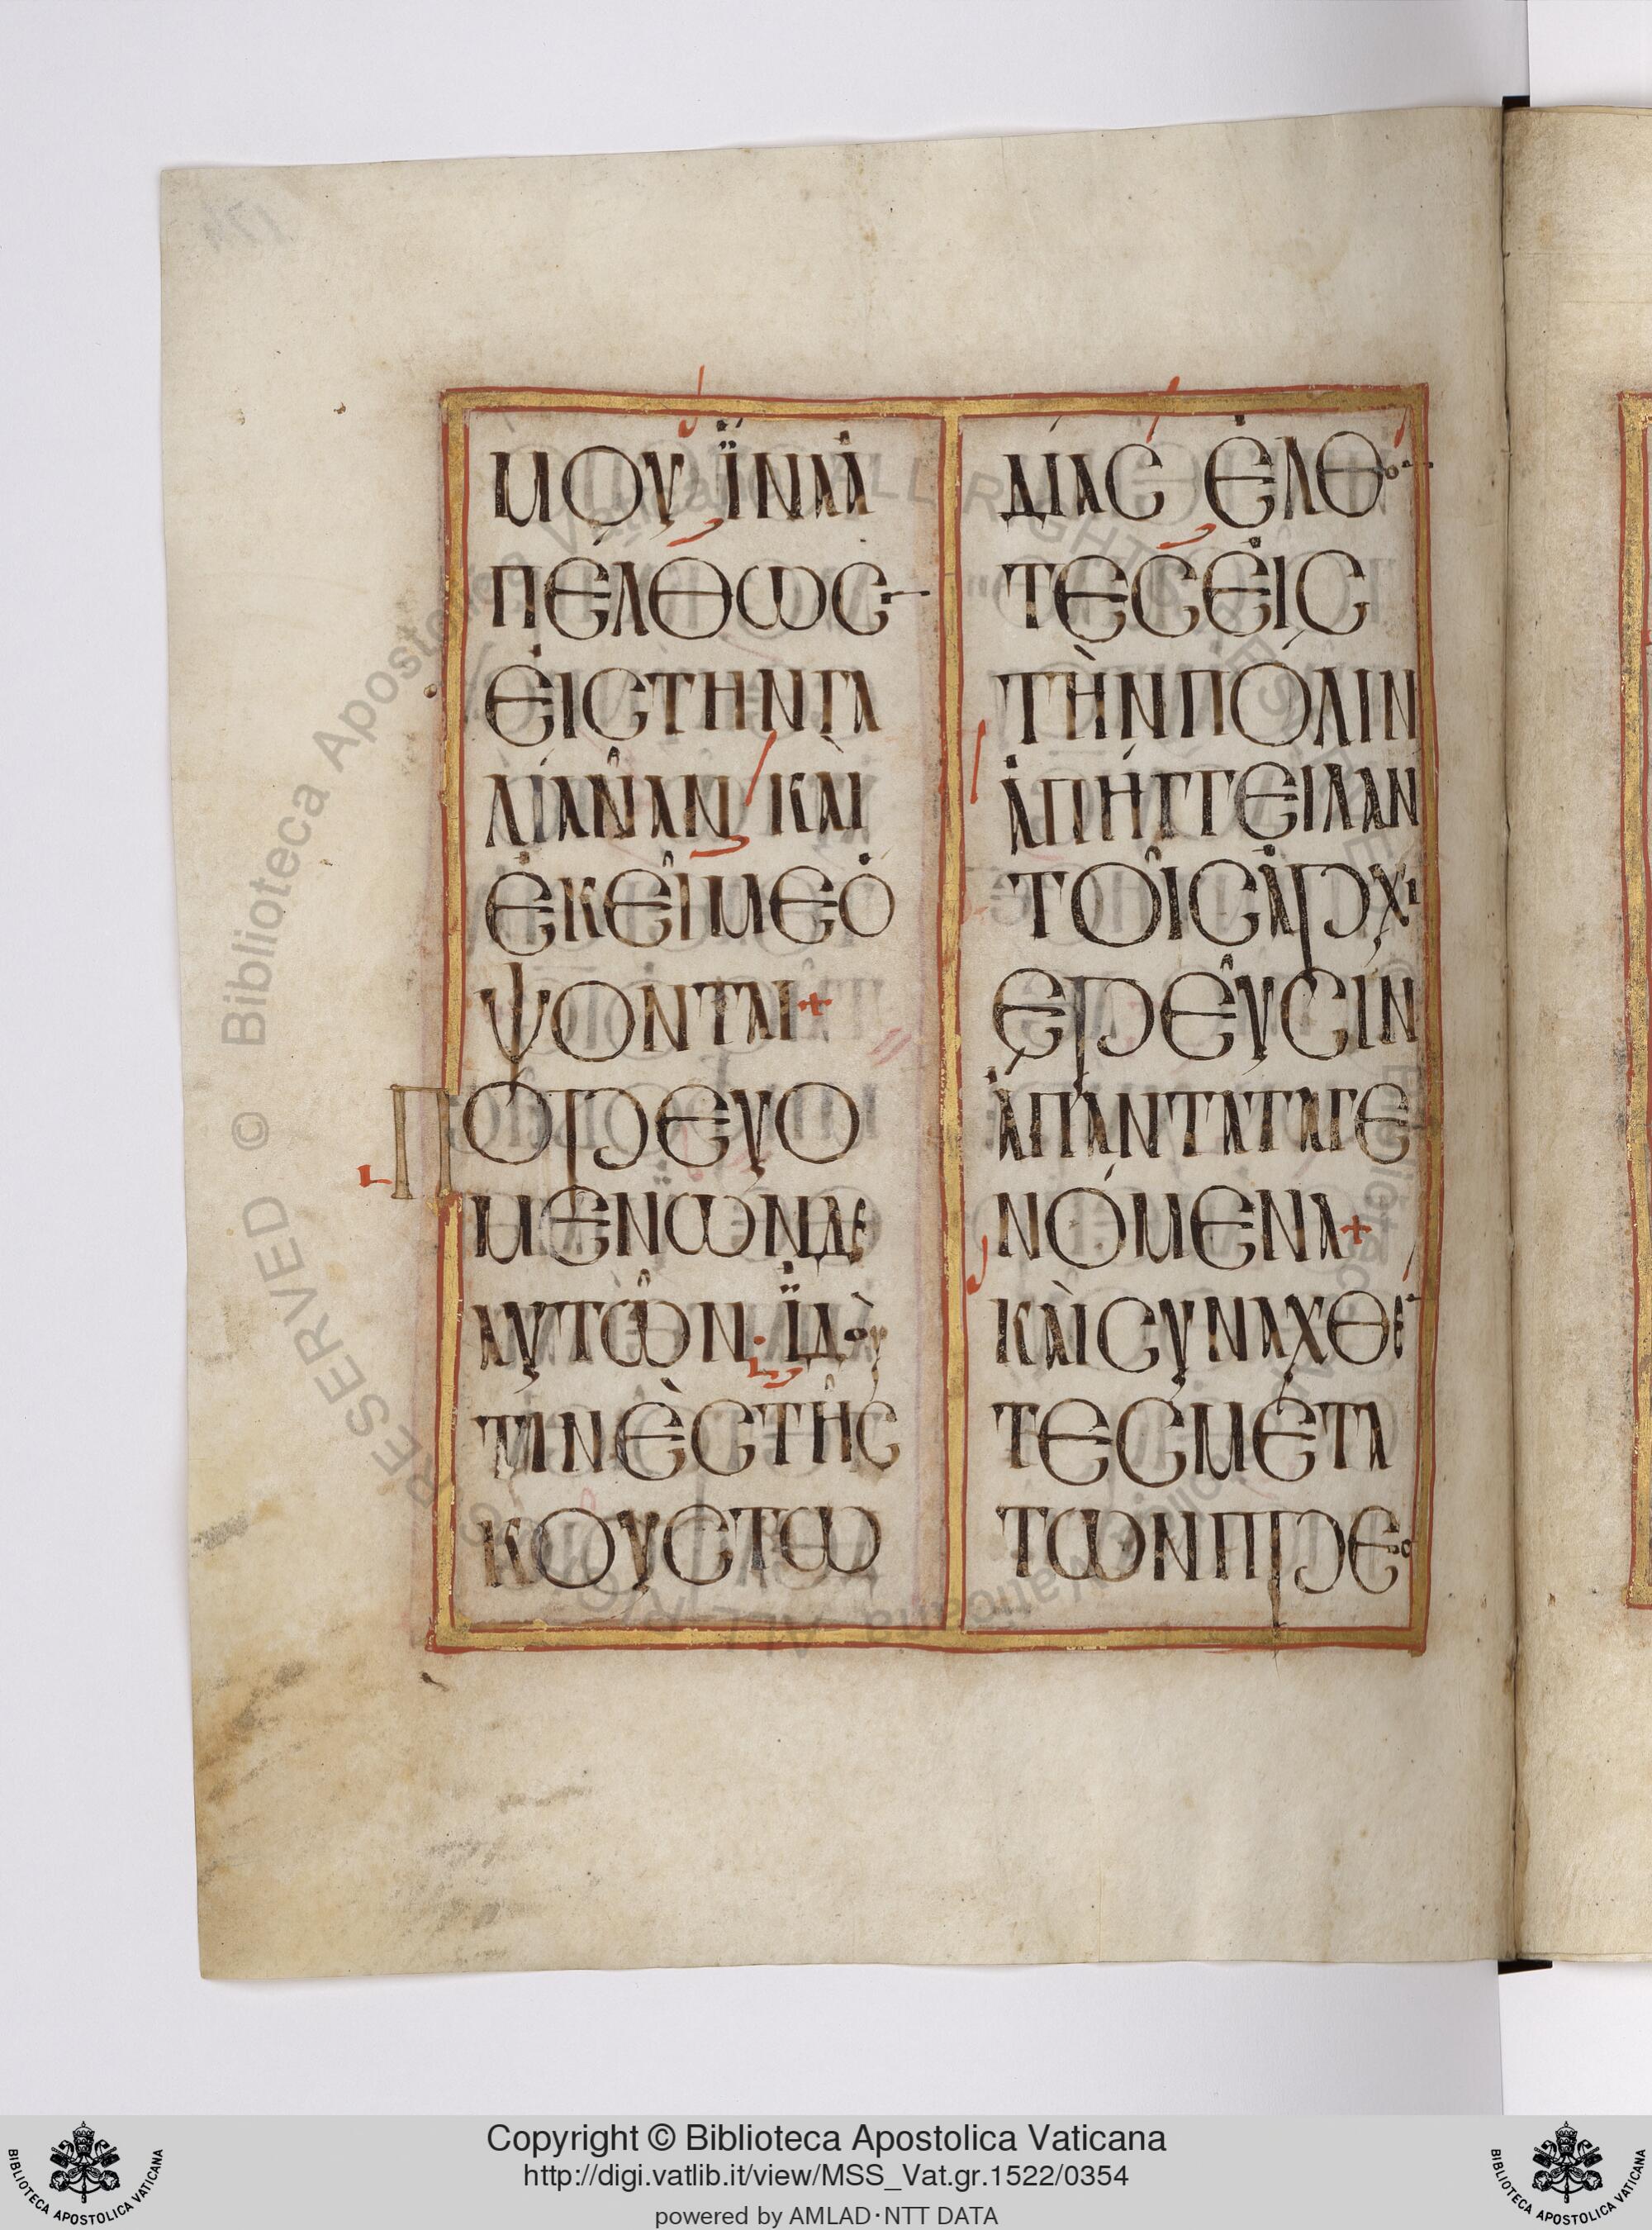 ΜΟΥ ΪΝΑἈ
ΠΕΛΘΩϹΙ
ΕἸϹΤΗΝΓΑ
ΛΙΛΑΙΑΝ ΚΑῚ
ἘΚΕΙ͂ΜΕὈ
ΨΟΝΤΑΙ+
ΠΟΡΕΥΟ
ΜΕΝΩΝΔΕ
ΑΥΤΩ͂Ν· ἸΔΟῪ
ΤΙΝῈϹΤΗ͂Ϲ
ΚΟΥϹΤΩ
ΔΙΑϹ ἘΛΘΟ
ΤΕϹἘΙϹ
ΤῊΝΠΌΛΙΝ
ἈΠΉΓΓΕΙΛΑΝ
ΤΟΙ͂ϹἈΡΧΙ
ΕΡΕΥ͂ϹΙΝ
ἉΠΑΝΤΑΤΑΓΕ
ΝΌΜΕΝΑ+
ΚΑῚϹΥΝΑΧΘΕ
ΤΕϹΜΕΤΑ
ΤΩΝΠΡΕϹ
Copyright © Biblioteca Apostolica Vaticana
http://digi.vatlib.it/view/MSS_Vat.gr.1522/0354
powered by AMLAD·NTT DATA
BIBLIOTECA APOSTOLICA VATICANA
BIBLIOTECA APOSTOLICA VATICANA